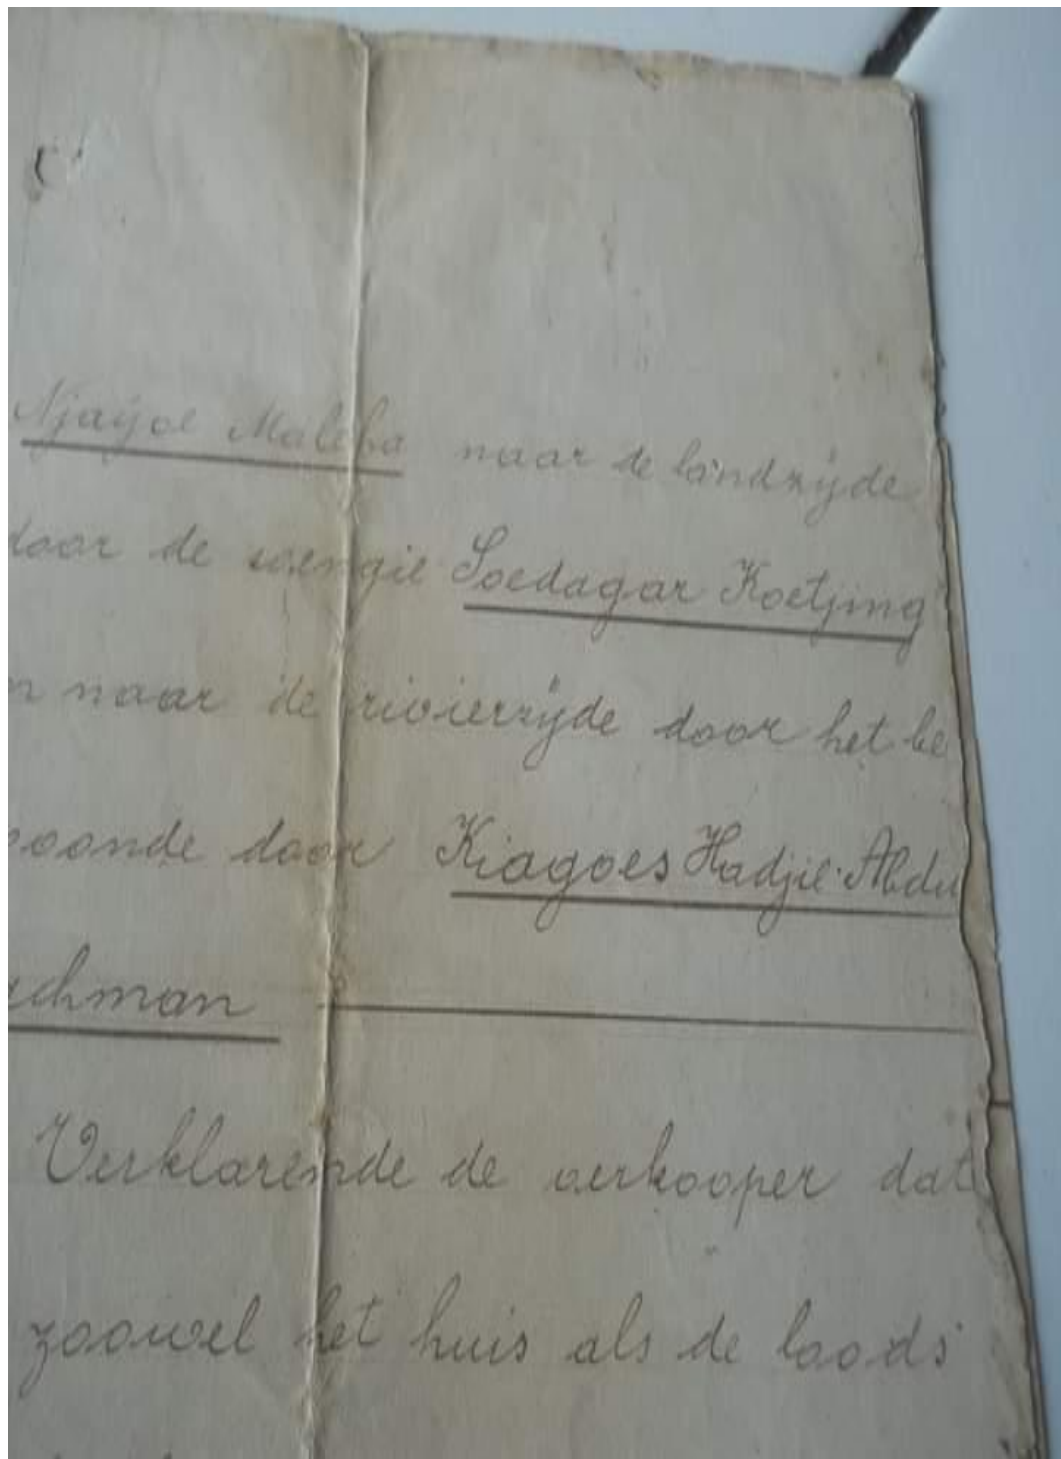 Njayoe Maleba naar de landzijde
door de soengie Soedagar Koetjing
n naar de rivierzijde door het be
oonde door Kiagoes Hadjie Abdu
achman
Verklarende de verkooper dat
zoowel het huis als de loods